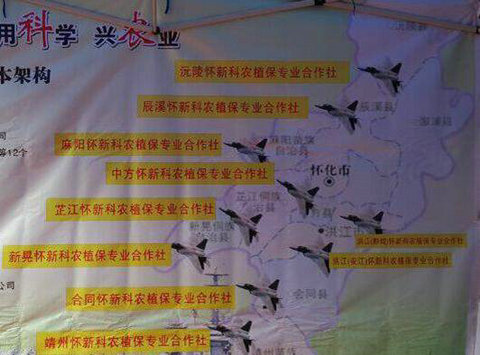 用科学 兴农业
本架构
沅陵怀新科农植保专业合作社
辰溪怀新科农植保专业合作社
辰溪县
麻阳怀新科农植保专业合作社
麻阳苗族
自治县
中方怀新科农植保专业合作社
怀化市
芷江怀新科农植保专业合作社
芷江侗族
自治县
新晃侗族
自治县
洪江市
新晃怀新科农植保专业合作社
洪江(安江)怀新科农植保专业合作社
会同怀新科农植保专业合作社
会同县
靖州怀新科农植保专业合作社